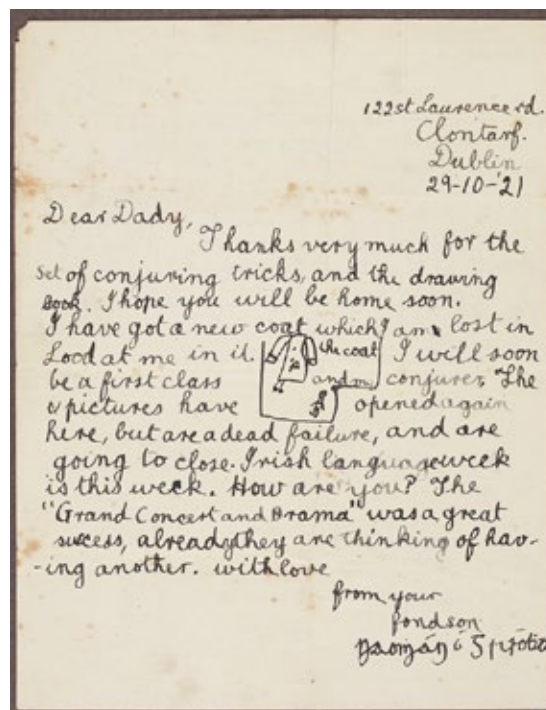 122 st Laurence rd.
Clontarf.
Dublin
29-10-'21
Dear Dady,
Thanks very much for the
Set of conjuring tricks, and the drawing
book. I hope you will be home soon.
I have got a new coat which I am lost in
Lood at me in it. the coat I will soon
be a first class and me conjurer. The
pictures have opened again
here, but are a dead failure, and are
going to close. Irish language week
is this week. How are you? The
"Grand Concert and Drama" was a great
success, already they are thinking of hav-
-ing another. with love
from your
fond son